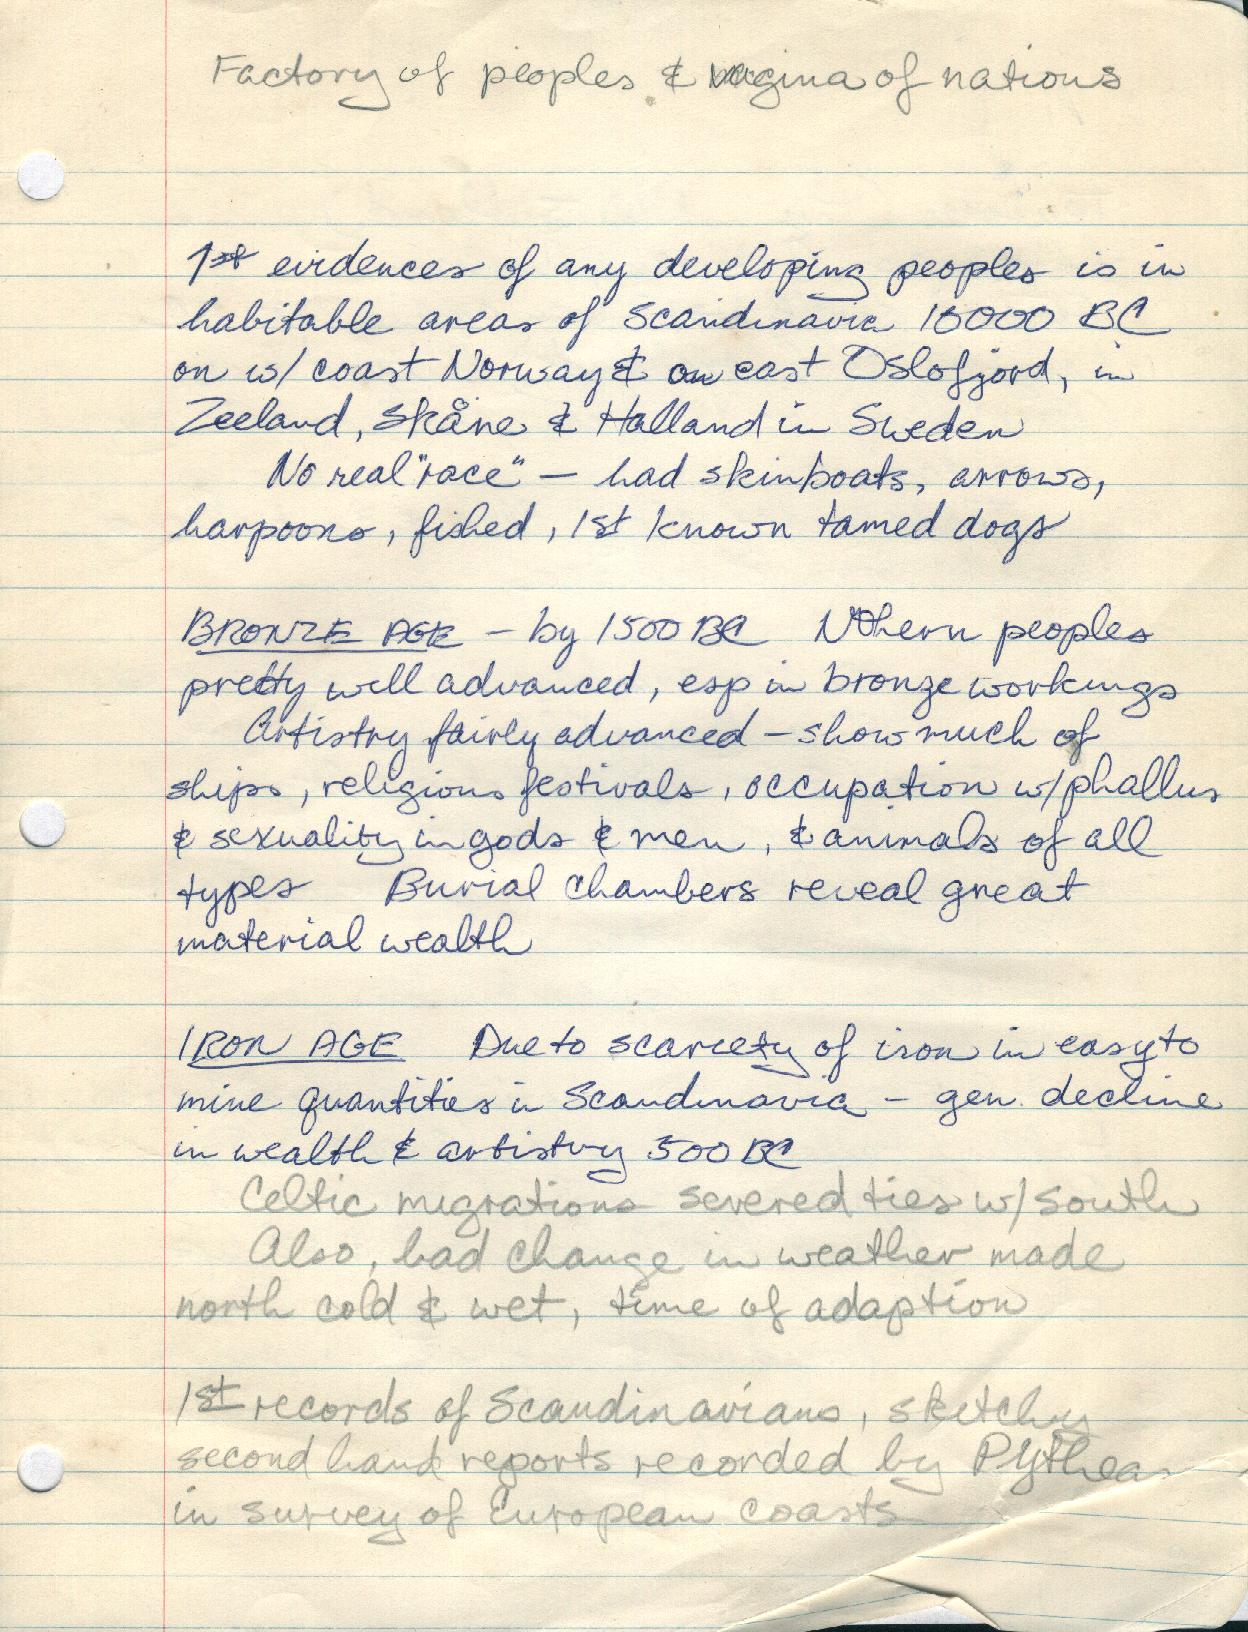 Factory of peoples & vagina of nations
1st evidences of any developing peoples is in
habitable areas of Scandinavia 10000 BC
on w/ coast Norway & on east Oslofjord, in
Zeeland, Skåne & Halland in Sweden
No real "race" — had skinboats, arrows,
harpoons, fished, 1st known tamed dogs
BRONZE AGE - by 1500 BC Nthern peoples
pretty well advanced, esp in bronze workings
Artistry fairly advanced - show much of
ships, religious festivals, occupation w/ phallus
& sexuality in gods & men, & animals of all
types Burial chambers reveal great
material wealth
IRON AGE Due to scarcety of iron in easy to
mine quantities in Scandinavia - gen. decline
in wealth & artistry 500 BC
Celtic migrations severed ties w/ South
Also, bad change in weather made
north cold & wet, time of adaption
1st records of Scandinavians, sketchy
second hand reports recorded by Pytheas
in survey of European coasts